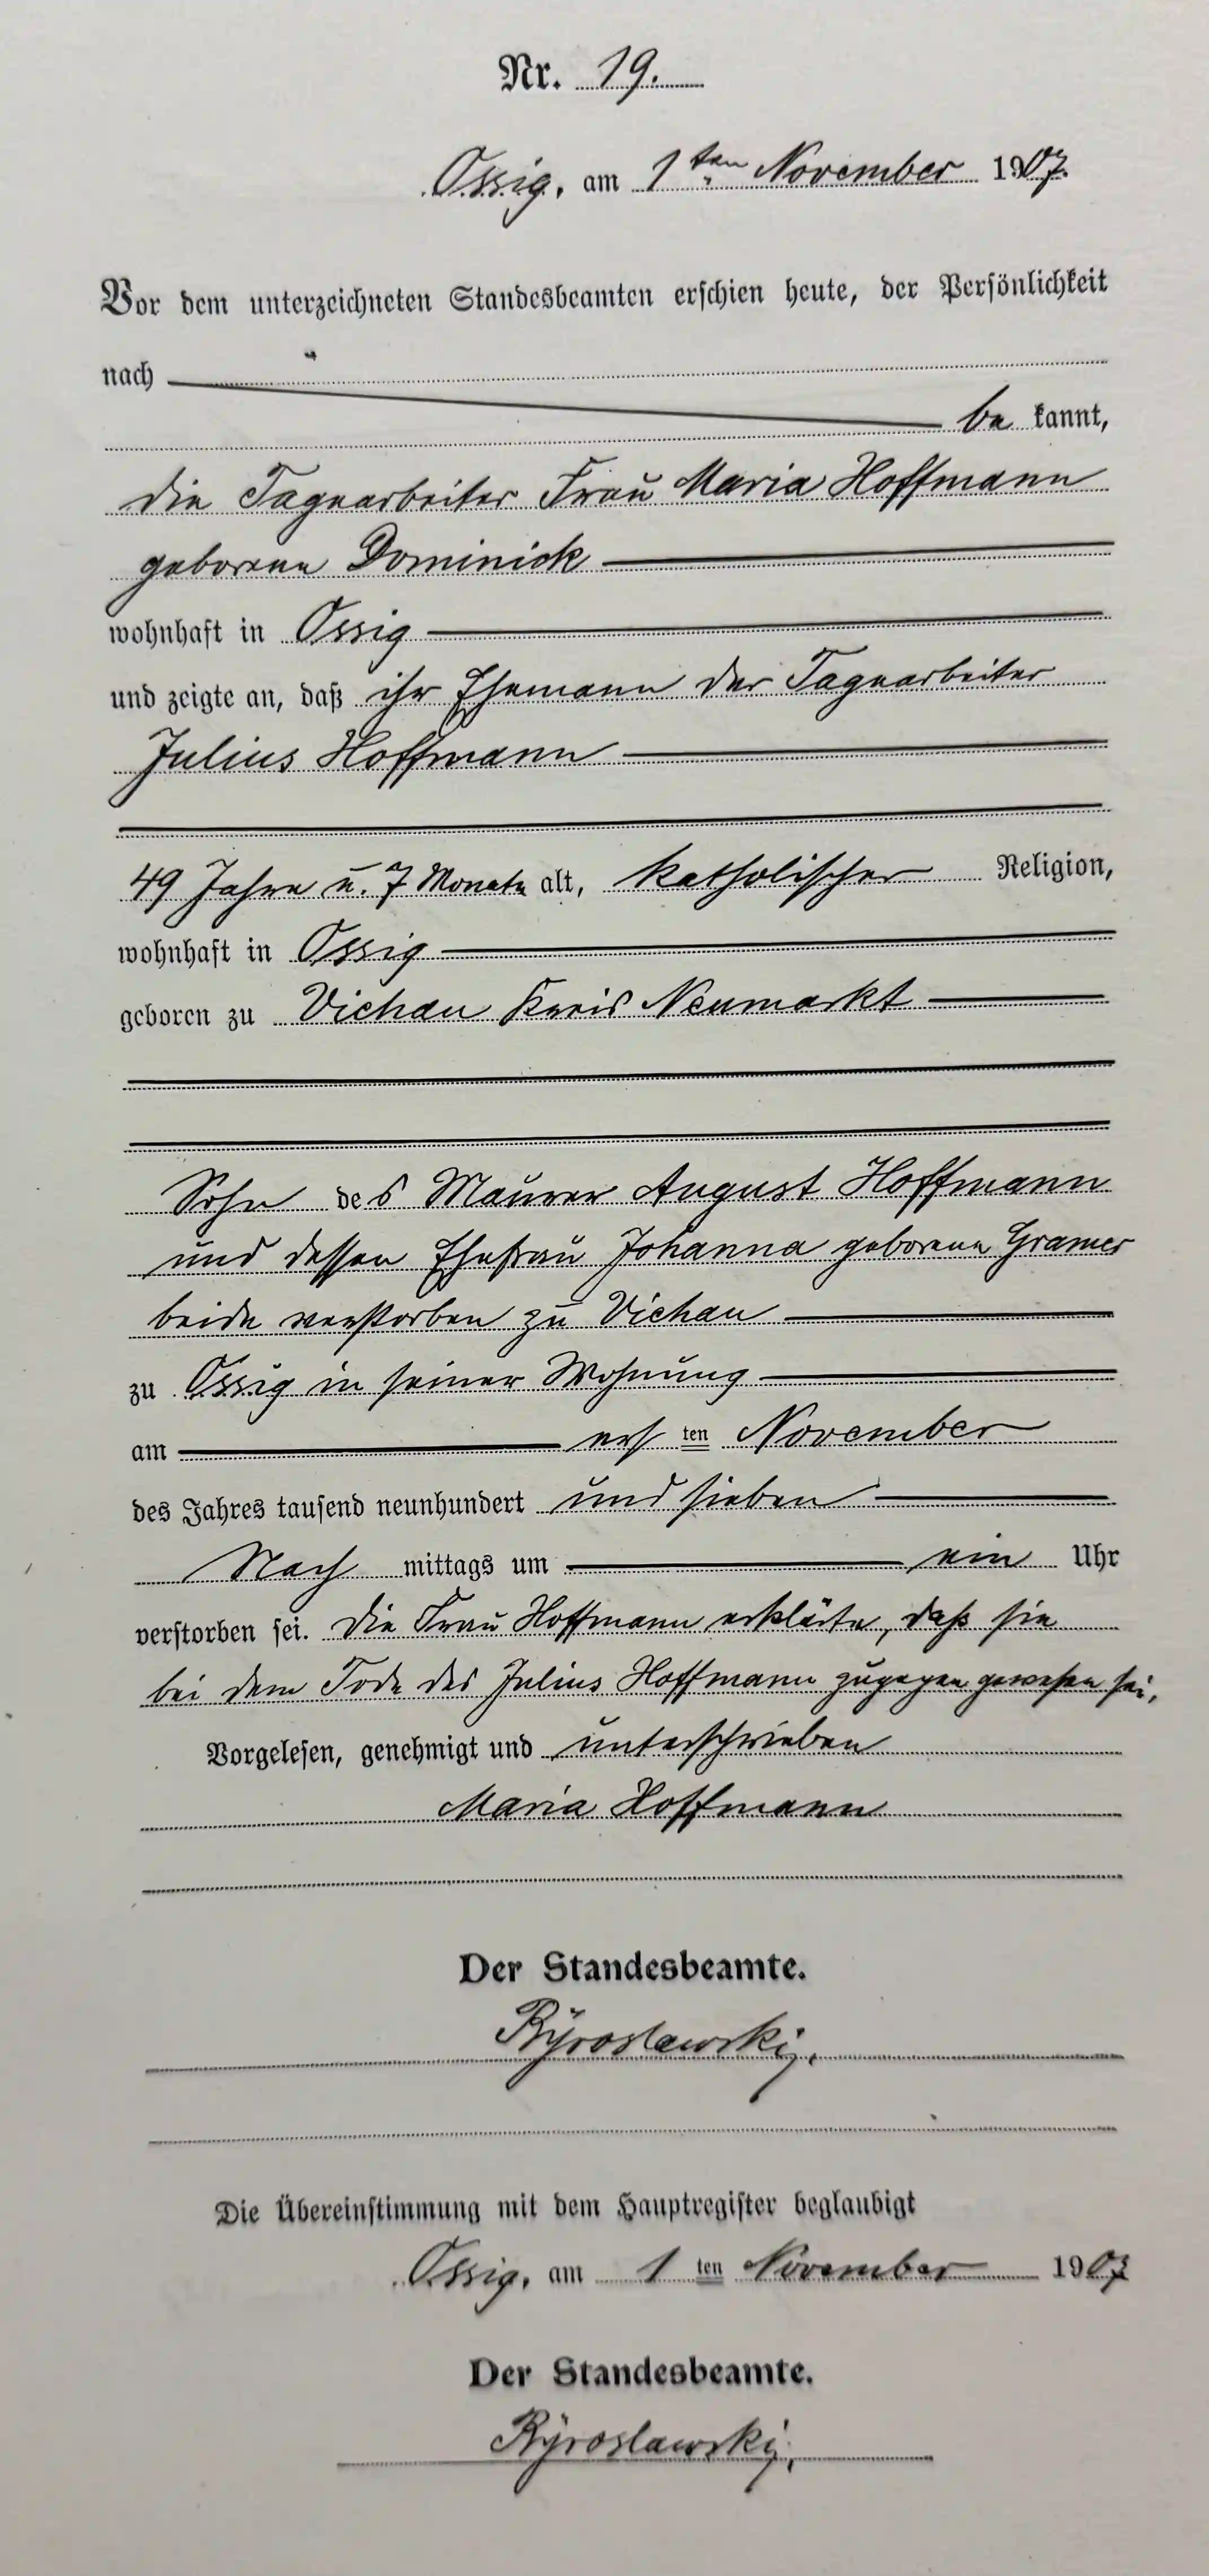 Nr. 19.
Ossig, am 1ten November 1907.
Vor dem unterzeichneten Standesbeamten erschien heute, der Persönlichkeit
nach
be kannt,
die Tagearbeiter Frau Maria Hoffmann
geborene Dominick
wohnhaft in Ossig
und zeigte an, daß ihr Ehemann der Tagearbeiter
Julius Hoffmann
49 Jahre u. 7 Monate alt, katholischer Religion,
wohnhaft in Ossig
geboren zu Vichau Kreis Neumarkt
Sohn des Maurer August Hoffmann
und dessen Ehefrau Johanna geborene Gramer
beide verstorben zu Vichau
zu Ossig in seiner Wohnung
am ersten November
des Jahres tausend neunhundert und sieben
Nach mittags um ein Uhr
verstorben sei. Die Frau Hoffmann erklärte, daß sie
bei dem Tode des Julius Hoffmann zugegen gewesen sei,
Vorgelesen, genehmigt und unterschrieben
Maria Hoffmann
Der Standesbeamte.
Die Übereinstimmung mit dem Hauptregister beglaubigt
Ossig, am 1ten November 1907
Der Standesbeamte.